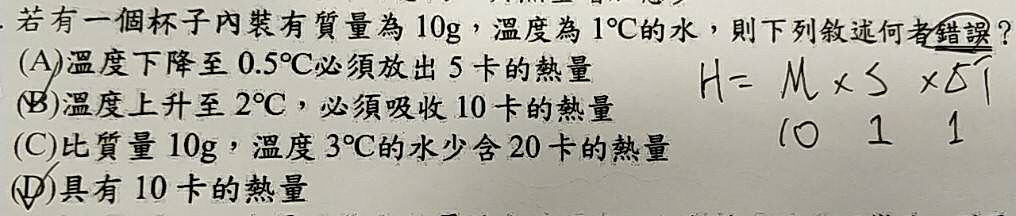 若有一個杯子內裝有質量為 10g，溫度為 1°C的水，則下列敘述何者錯誤？
(A)溫度下降至 0.5°C必須放出 5 卡的熱量
(B)溫度上升至 2°C，必須吸收 10 卡的熱量
(C)比質量 10g，溫度 3°C的水少含 20 卡的熱量
(D)具有 10 卡的熱量
H = M × S × ΔT
10 1 1